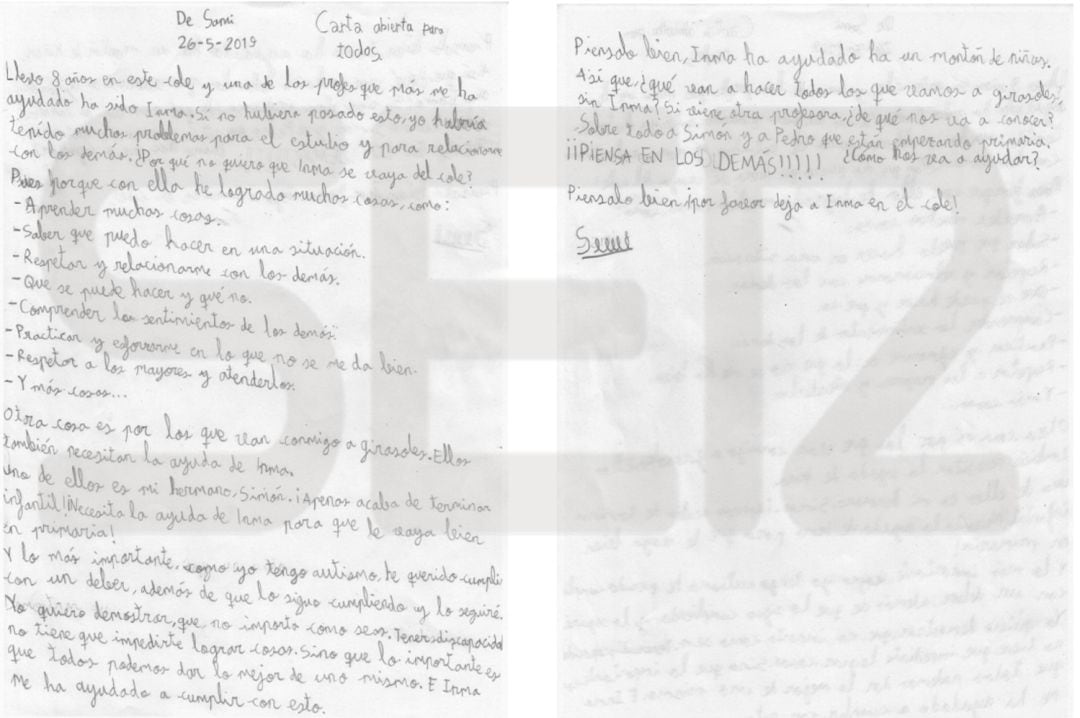 De Sami
26-5-2019
Carta abierta para
todos
Llevo 8 años en este cole y una de los profes que más me ha
ayudado ha sido Inma. Si no hubiera pasado esto, yo habría
tenido muchos problemas para el estudio y para relacionarme
con los demás. ¿Por qué no quiero que Inma se vaya del cole?
Pues porque con ella he logrado muchas cosas, como:
-Aprender muchas cosas.
-Saber que puedo hacer en una situación.
-Respetar y relacionarme con los demás.
-Que se puede hacer y qué no.
-Comprender los sentimientos de los demás.
-Practicar y esforzarme en lo que no se me da bien.
-Respetar a los mayores y atenderlos.
-Y más cosas...
Otra cosa es por los que van conmigo a girasoles. Ellos
también necesitan la ayuda de Inma.
Uno de ellos es mi hermano, Simón. ¡Apenas acaba de terminar
infantil! ¡Necesita la ayuda de Inma para que le vaya bien
en primaria!
Y lo más importante, como yo tengo autismo, he querido cumplir
con un deber, además de que lo sigo cumpliendo y lo seguiré.
Yo quiero demostrar, que no importa como seas. Tener discapacidad
no tiene que impedirte lograr cosas. Sino que lo importante es
que todos podemos dar lo mejor de uno mismo. E Inma
me ha ayudado a cumplir con esto.
Piensalo bien, Inma ha ayudado ha un montón de niños.
Así que, ¿qué van a hacer todos los que vamos a girasoles,
sin Inma? Si viene otra profesora, ¿de qué nos va a conocer?
Sobre todo a Simon y a Pedro que están empezando primaria.
¡¡PIENSA EN LOS DEMÁS!!!!! ¿Cómo nos va a ayudar?
Piensalo bien ¡por favor deja a Inma en el cole!
Sami
SER12